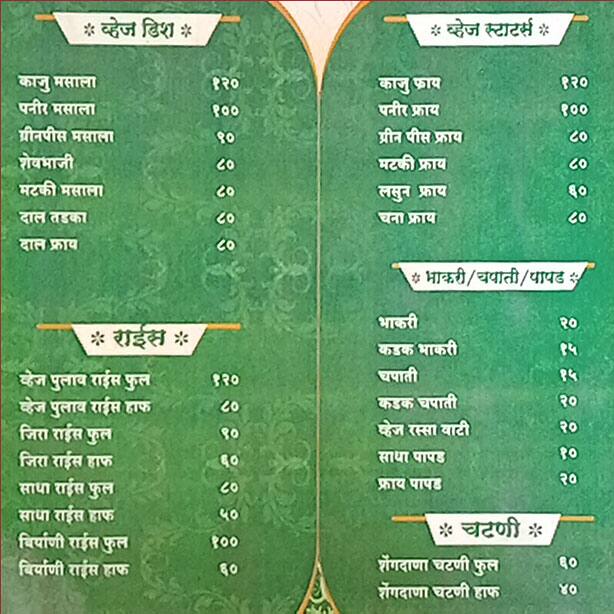 * व्हेज डिश *
काजु मसाला १२०
पनीर मसाला १००
ग्रीनपीस मसाला ९०
शेवभाजी ८०
मटकी मसाला ८०
दाल तडका ८०
दाल फ्राय ८०
* राईस *
व्हेज पुलाव राईस फुल १२०
व्हेज पुलाव राईस हाफ ८०
जिरा राईस फुल ९०
जिरा राईस हाफ ६०
साधा राईस फुल ८०
साधा राईस हाफ ५०
बिर्याणी राईस फुल १००
बिर्याणी राईस हाफ ६०
* व्हेज स्टाटर्स *
काजु फ्राय १२०
पनीर फ्राय १००
ग्रीन पीस फ्राय ८०
मटकी फ्राय ८०
लसुन फ्राय ६०
चना फ्राय ८०
* भाकरी/चपाती/पापड *
भाकरी २०
कडक भाकरी १५
चपाती १५
कडक चपाती २०
व्हेज रस्सा वाटी २०
साधा पापड १०
फ्राय पापड २०
* चटणी *
शेंगदाणा चटणी फुल ६०
शेंगदाणा चटणी हाफ ४०